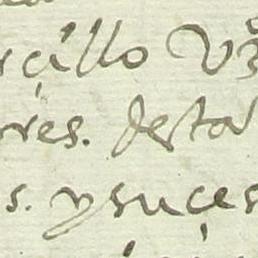 rcillo Vz
rres. desta
s. y suçes